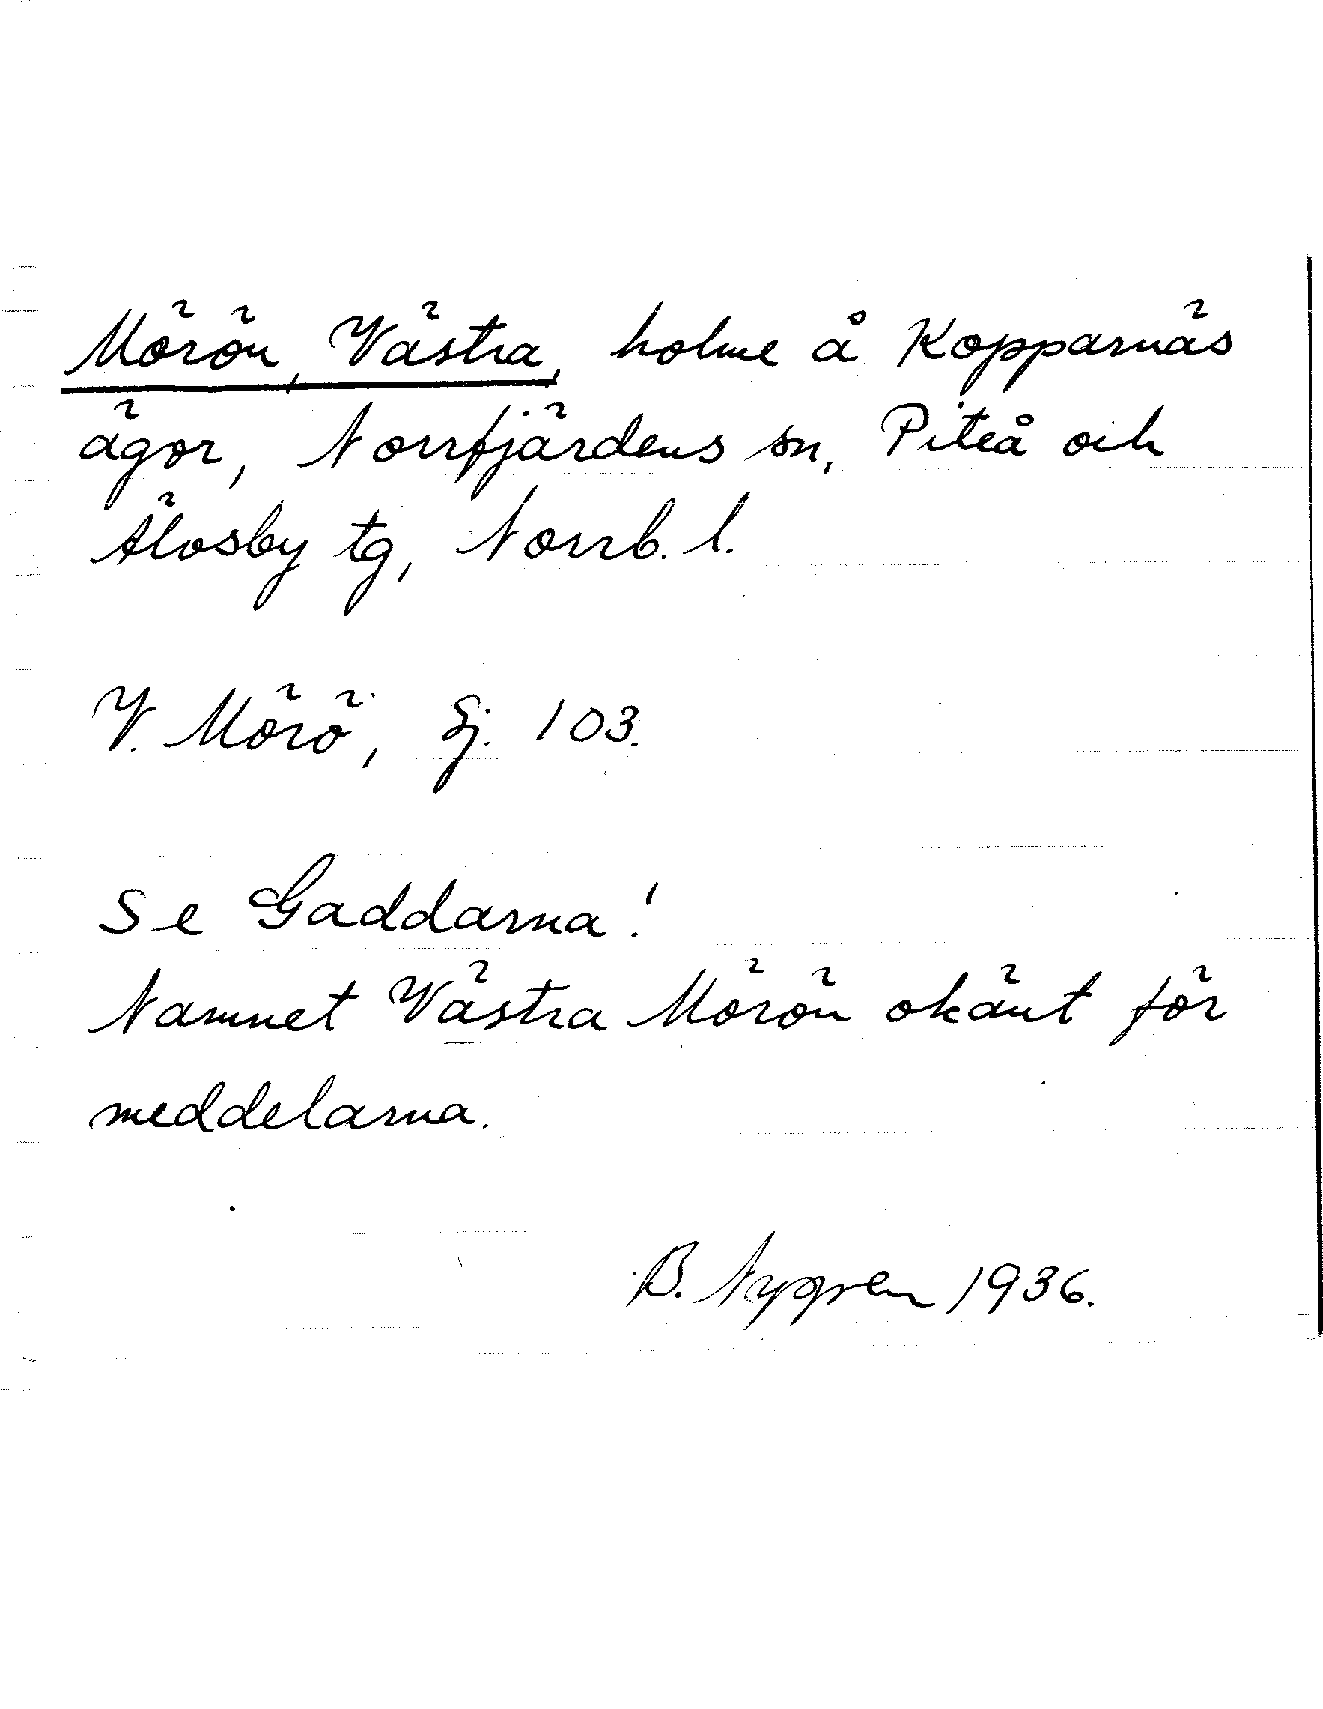 Mörön, Västra, holme å Kopparnäs
ägor, Norrfjärdens sn, Piteå och
Älvsby tg, Norrb. l.
V. Mörö, Sj. 103.
Se Gaddarna!
Namnet Västra Mörön okänt för
meddelarna.
B. Nygren 1936.